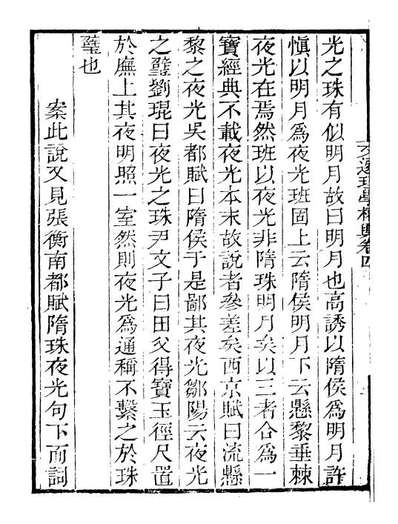 文選理學權輿卷四
光之珠有似明月故曰明月也高誘以隋侯爲明月許
愼以明月爲夜光班固上云隋侯明月下云懸黎垂棘
夜光在焉然班以夜光非隋珠明月矣以三者合爲一
寶經典不載夜光本末故說者參差矣西京賦曰流懸
黎之夜光吳都賦曰隋侯于是鄙其夜光鄒陽云夜光
之璧劉琨曰夜光之珠尹文子曰田父得寶玉徑尺置
於廡上其夜明照一室然則夜光爲通稱不繫之於珠
璧也
案此說又見張衡南都賦隋珠夜光句下而詞